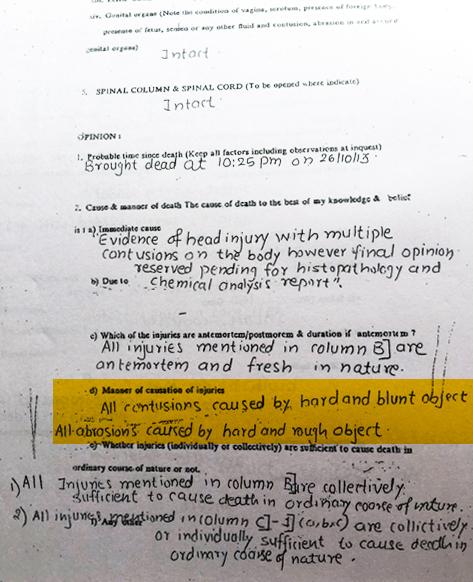 xiv. Genital organs (Note the condition of vagina, scrotum, presence of foreign
presence of fetus, semen or any other fluid and contusion, abrasion in and around
genital organs)
Intact
5. SPINAL COLUMN & SPINAL CORD (To be opened where indicate)
Intact
OPINION :
1. Probable time since death (Keep all factors including observations at inquest)
Brought dead at 10:25 pm on 26/10/13.
2. Cause & manner of death The cause of death to the best of my knowledge & belief
is : a) Immediate cause
"Evidence of head injury with multiple
contusions on the body however final opinion
reserved pending for histopathology and
b) Due to chemical analysis report".
-
c) Which of the injuries are antemortem/postmorem & duration if antemortem ?
All injuries mentioned in column B] are
antemortem and fresh in nature.
d) Manner of causation of injuries
All contusions caused by hard and blunt object
All abrosions caused by hard and rough object.
e) Whether injuries (individually or collectively) are sufficient to cause death in
ordinary course of nature or not.
1) All Injuries mentioned in column B] are collectively
sufficient to cause death in ordinary coorse of nature.
2) All injuries mentioned in column C]-I] (a,b,c) are collictively
or individually sufficient to cause death in
ordinary coorse of nature.